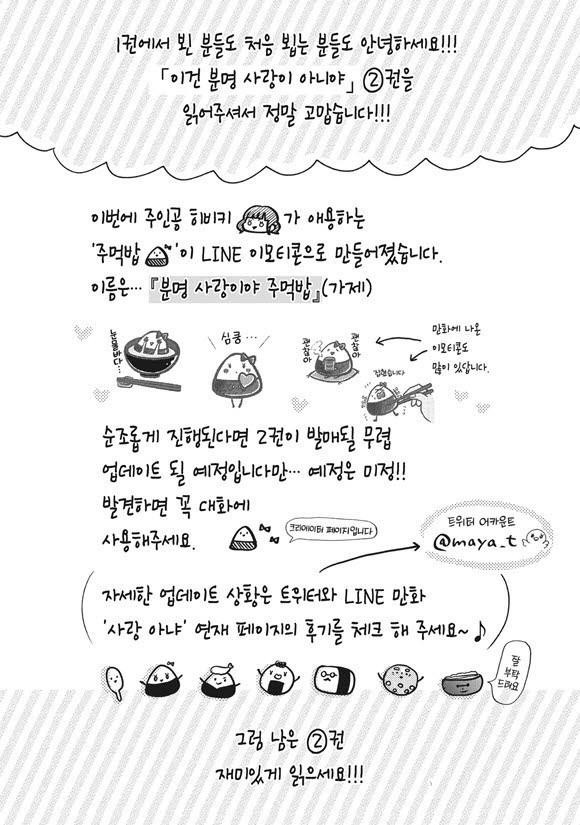 1권에서 뵌 분들도 처음 뵙는 분들도 안녕하세요!!!
「이건 분명 사랑이 아니야」 ②권을
읽어주셔서 정말 고맙습니다!!!
이번에 주인공 히비키 가 애용하는
'주먹밥 '이 LINE 이모티콘으로 만들어졌습니다.
이름은… 『분명 사랑이야 주먹밥』(가제)
눈물바다…
심쿵…
괜찮아
괜찮아
잡혔습니다
만화에 나온
이모티콘도
많이 있답니다.
순조롭게 진행된다면 2권이 발매될 무렵
업데이트 될 예정입니다만… 예정은 미정!!
발견하면 꼭 대화에
사용해주세요.
크리에이터 페이지입니다
트위터 어카운트
@maya_t
자세한 업데이트 상황은 트위터와 LINE 만화
'사랑 아냐' 연재 페이지의 후기를 체크 해 주세요~♪
잘
부탁
드려요
그럼 남은 ②권
재미있게 읽으세요!!!